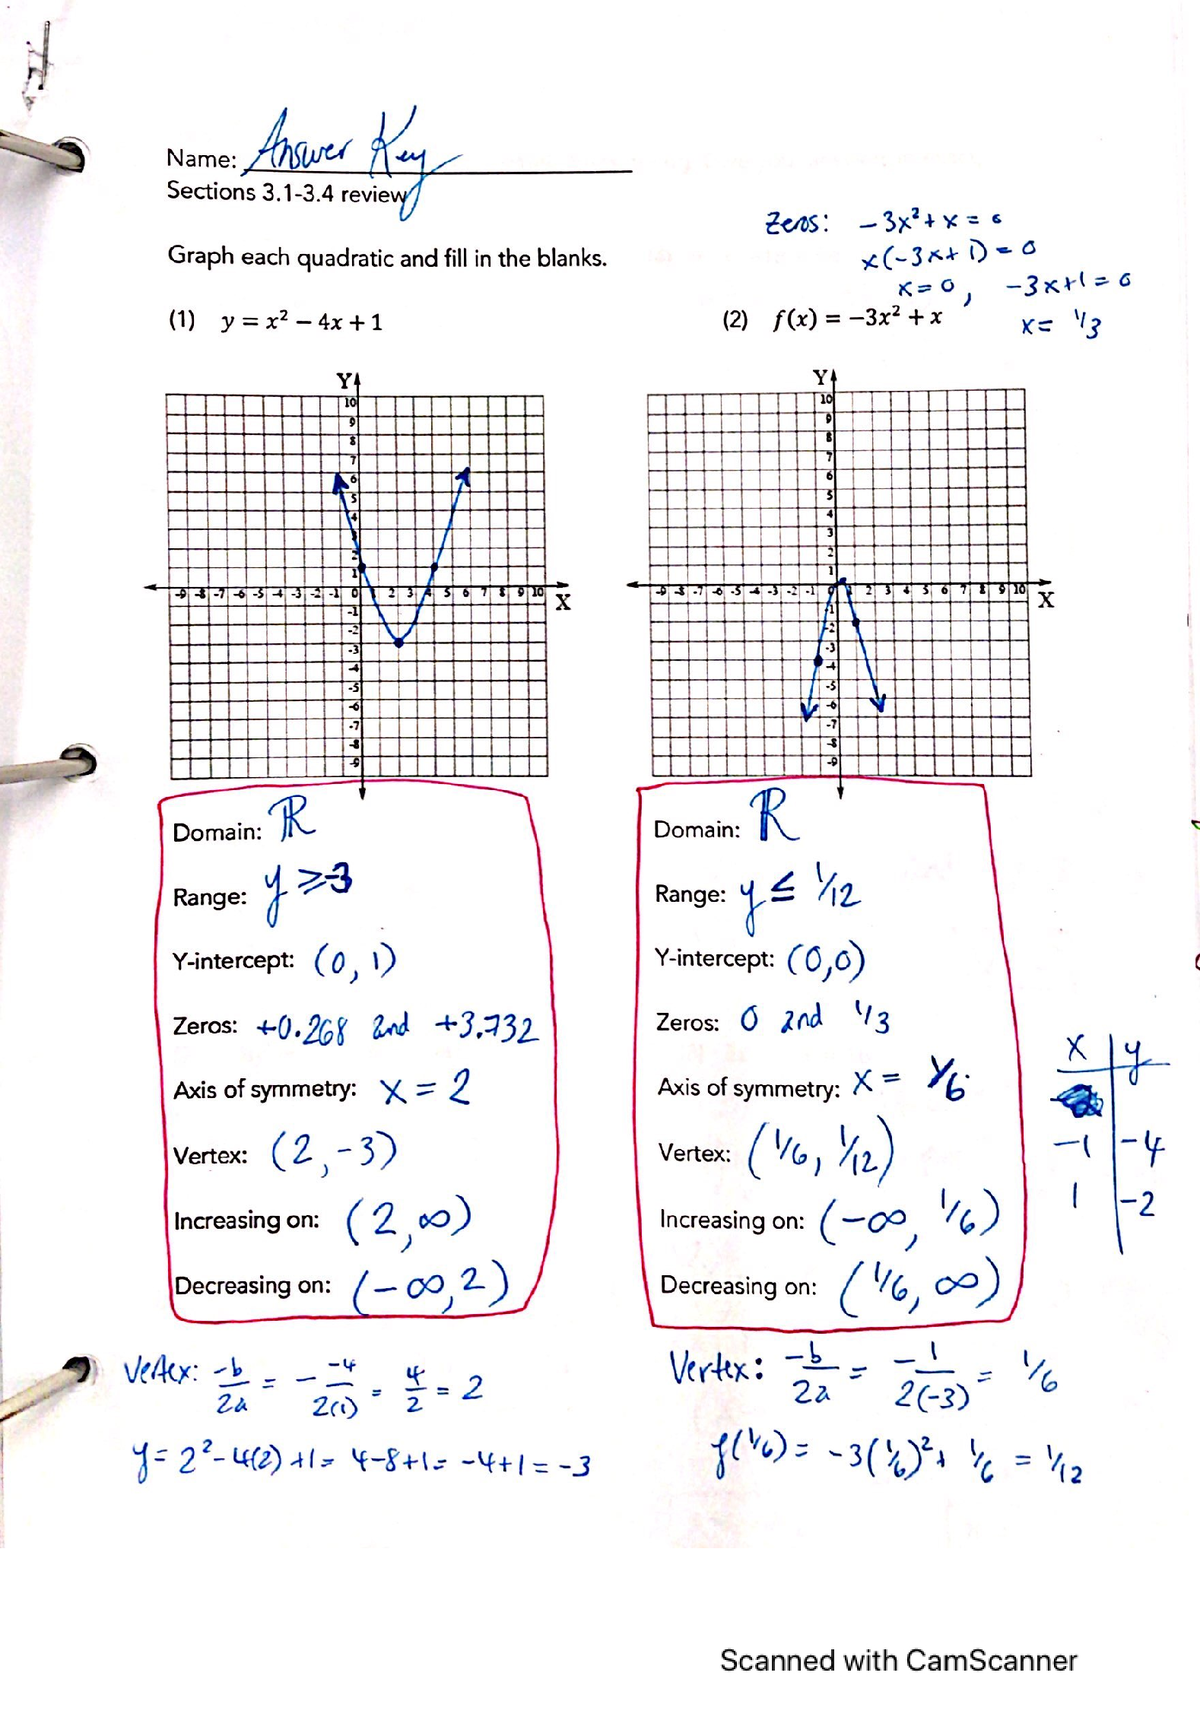 Name: Answer Key
Sections 3.1-3.4 review
Graph each quadratic and fill in the blanks.
Zeros: -3x²+x=0
x(-3x+1)=0
x=0, -3x+1=0
x= 1/3
(1) y = x² − 4x + 1
(2) f(x) = −3x² + x
Y
10
9
8
7
6
5
4
3
2
1
-9 -8 -7 -6 -5 -4 -3 -2 -1 0 1 2 3 4 5 6 7 8 9 10
X
-1
-2
-3
-4
-5
-6
-7
-8
-9
Y
10
9
8
7
6
5
4
3
2
1
-9 -8 -7 -6 -5 -4 -3 -2 -1 0 1 2 3 4 5 6 7 8 9 10
X
-1
-2
-3
-4
-5
-6
-7
-8
-9
Domain: ℝ
Range: y ≥ -3
Y-intercept: (0, 1)
Zeros: +0.268 and +3.732
Axis of symmetry: x = 2
Vertex: (2, -3)
Increasing on: (2, ∞)
Decreasing on: (-∞, 2)
Vertex: -b/2a = - -4/2(1) = 4/2 = 2
y = 2²-4(2)+1= 4-8+1= -4+1= -3
Domain: ℝ
Range: y ≤ 1/12
Y-intercept: (0,0)
Zeros: 0 and 1/3
Axis of symmetry: x = 1/6
Vertex: (1/6, 1/12)
Increasing on: (-∞, 1/6)
Decreasing on: (1/6, ∞)
x y
-1 -4
1 -2
Vertex: -b/2a = -1/2(-3) = 1/6
f(1/6) = -3(1/6)²+ 1/6 = 1/12
Scanned with CamScanner